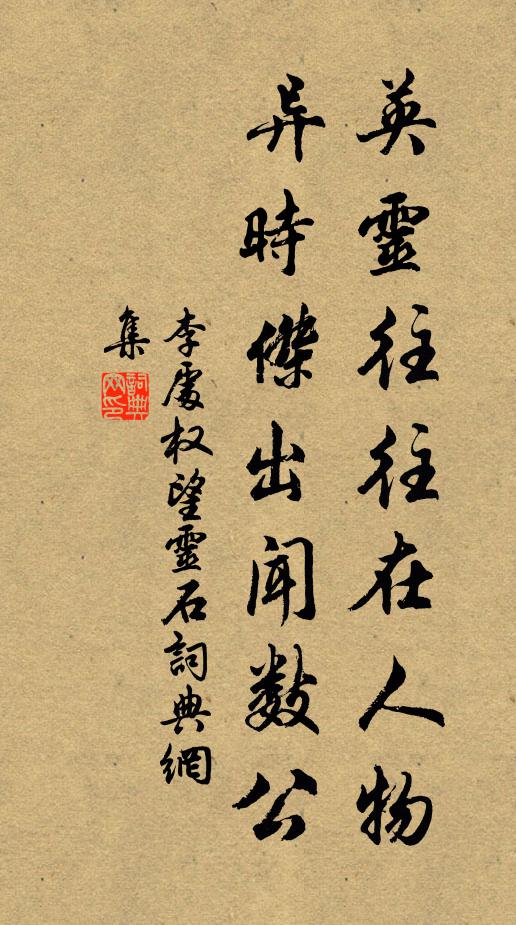 英靈往往在人物
异時傑出聞數公
李處权望靈石詞典網
集
詞典網印